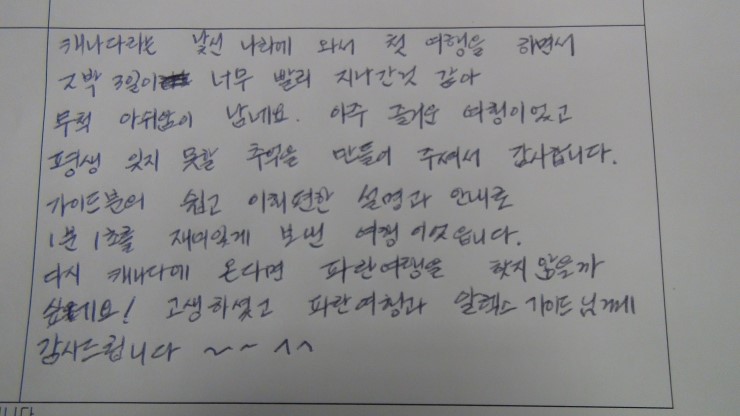 캐나다라는 낯선 나라에 와서 첫 여행을 하면서
2박 3일이 너무 빨리 지나간것 같아
무척 아쉬움이 남네요. 아주 즐거운 여행이었고
평생 잊지 못할 추억을 만들어 주셔서 감사합니다.
가이드분의 쉽고 이해편한 설명과 안내로
1분 1초를 재미있게 보낸 여행이었습니다.
다시 캐나다에 온다면 파란여행을 찾지 않을까
싶네요! 고생하셨고 파란여행과 알렉스 가이드님께
감사드립니다 ~~ ^^
니다